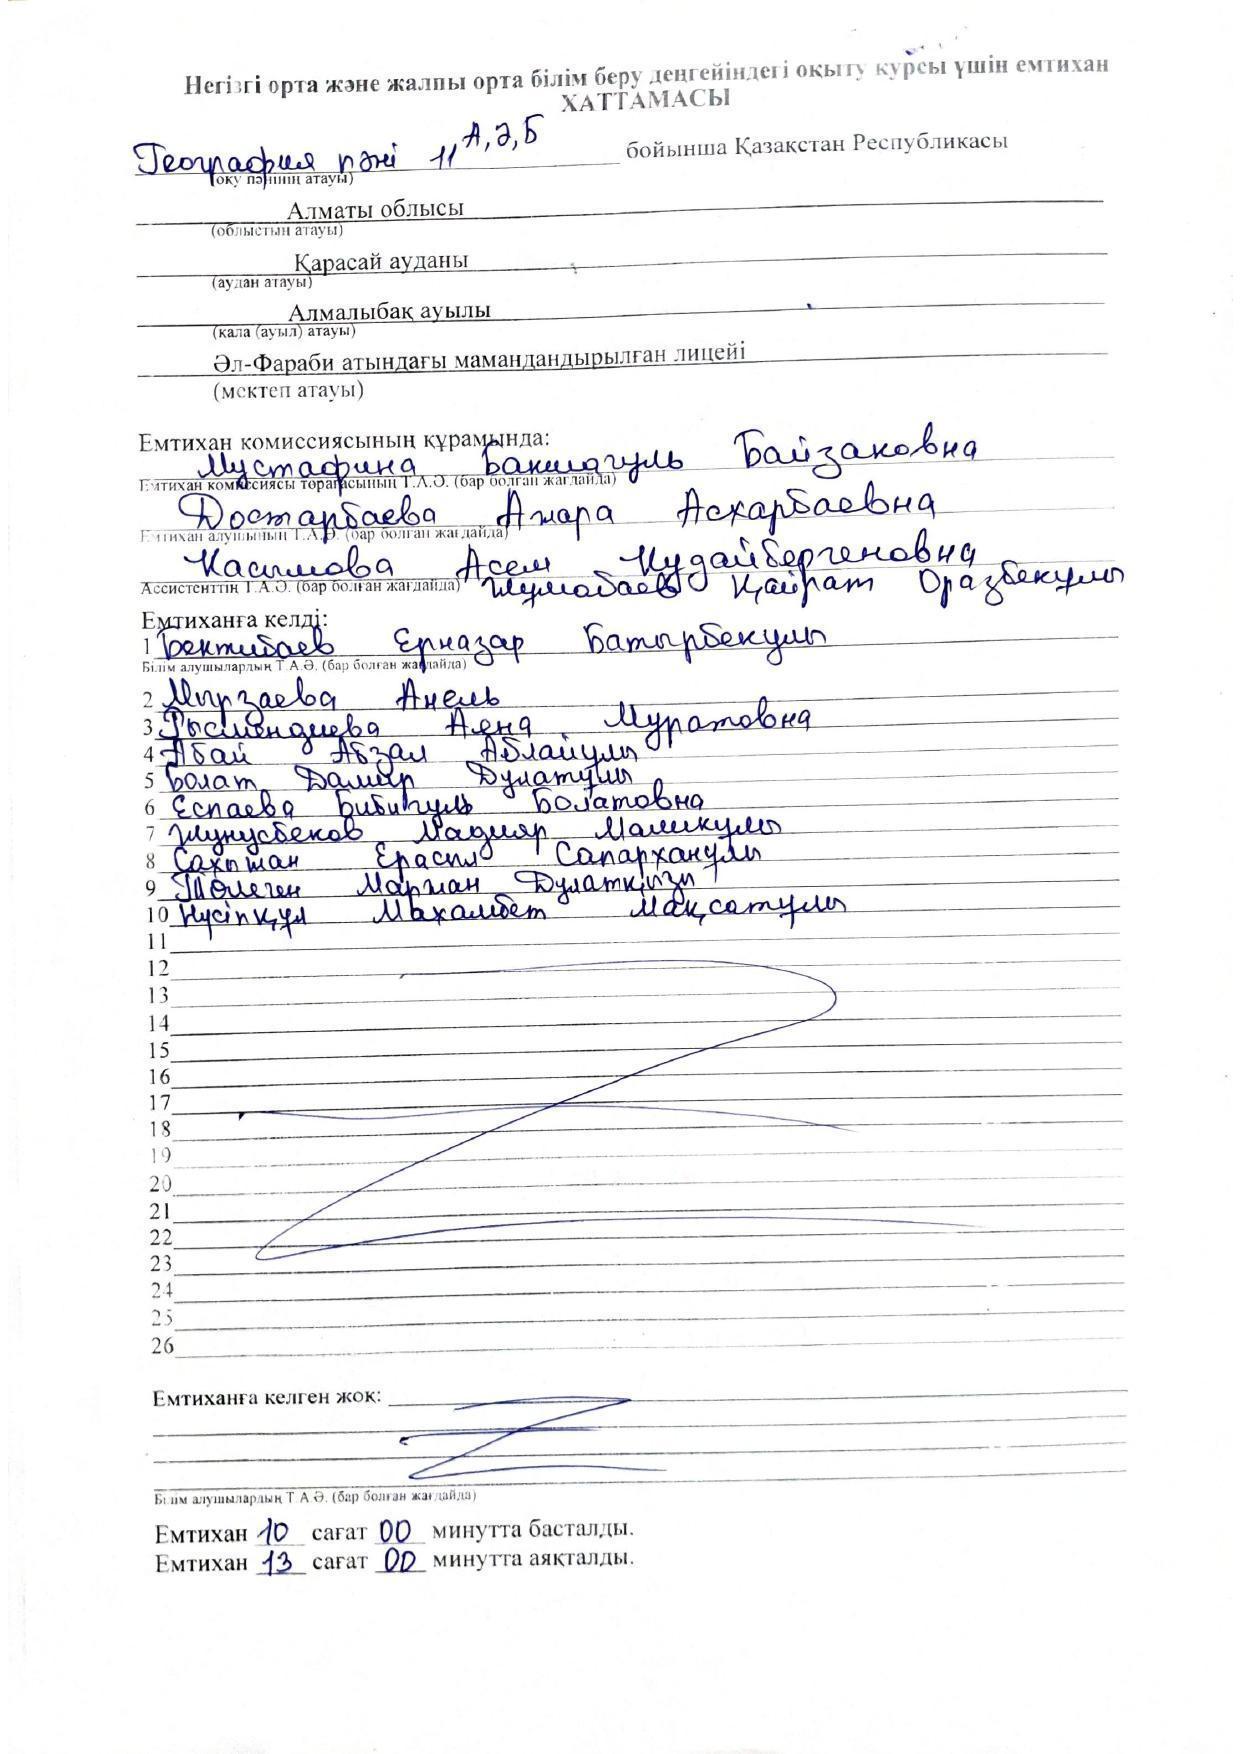 Негізгі орта және жалпы орта білім беру деңгейіндегі оқыту курсы үшін емтихан
ХАТТАМАСЫ
География пәні 11 А,Ә,Б бойынша Қазақстан Республикасы
(оқу пәнінің атауы)
Алматы облысы
(облыстың атауы)
Қарасай ауданы
(аудан атауы)
Алмалыбақ ауылы
(қала (ауыл) атауы)
Әл-Фараби атындағы мамандандырылған лицейі
(мектеп атауы)
Емтихан комиссиясының құрамында:
Мустафина Бакшагуль Байзаковна
Емтихан комиссиясы төрағасының Т.А.Ә. (бар болған жағдайда)
Достарбаева Ажара Асхарбаевна
Емтихан алушының Т.А.Ә. (бар болған жағдайда)
Касымова Асем Кудайбергеновна
Ассистенттің Т.А.Ә. (бар болған жағдайда) Жумабаев Қайрат Оразбекұлы
Емтиханға келді:
1 Бектибаев Ерназар Батырбекулы
Білім алушылардың Т.А.Ә. (бар болған жағдайда)
2 Мырзаева Анель
3 Рысмендиева Аяна Муратовна
4 Абай Абзал Аблайұлы
5 Болат Дамир Дулатұлы
6 Еспаева Бибигуль Болатовна
7 Жунусбеков Мадияр Маликулы
8 Сахыжан Ерасыл Сапарханұлы
9 Төлеген Маржан Дулатқызы
10 Нүсіпқұл Махамбет Мақсатұлы
11
12
13
14
15
16
17
18
19
20
21
22
23
24
25
26
Емтиханға келген жоқ:
Білім алушылардың Т.А.Ә. (бар болған жағдайда)
Емтихан 10 сағат 00 минутта басталды.
Емтихан 13 сағат 00 минутта аяқталды.